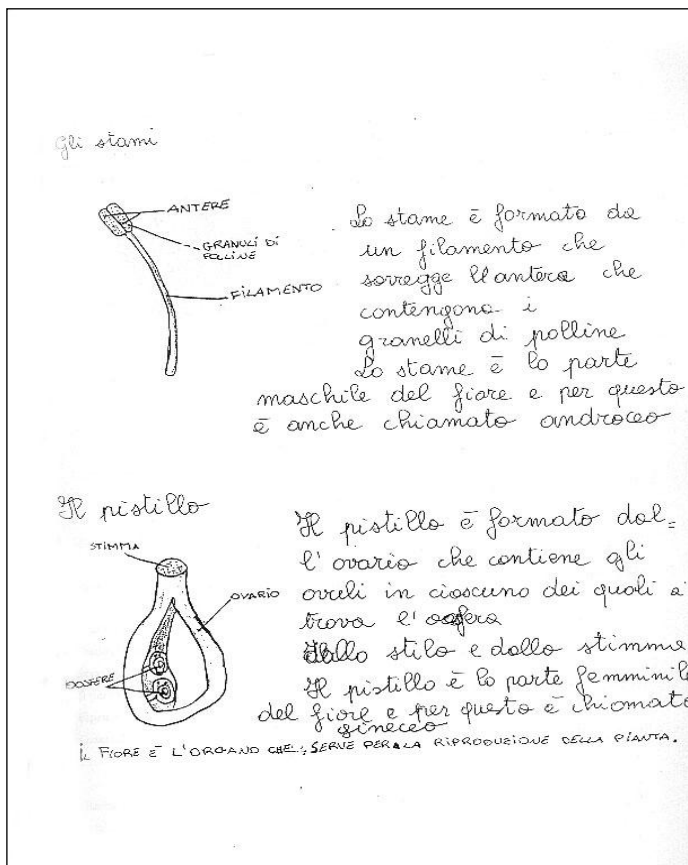 Gli stami
ANTERE
GRANULI DI
POLLINE
FILAMENTO
Lo stame è formato da
un filamento che
sorregge l'antera che
contengono i
granelli di polline
Lo stame è la parte
maschile del fiore e per questo
è anche chiamato androceo
Il pistillo
STIMMA
OVARIO
OOSFERE
Il pistillo è formato dal=
l'ovario che contiene gli
ovuli in ciascuno dei quali
trova l'oosfera
dallo stilo e dallo stimma
Il pistillo è la parte femminile
del fiore e per questo è chiamato
gineceo
IL FIORE È L'ORGANO CHE SERVE PER LA RIPRODUZIONE DELLA PIANTA.